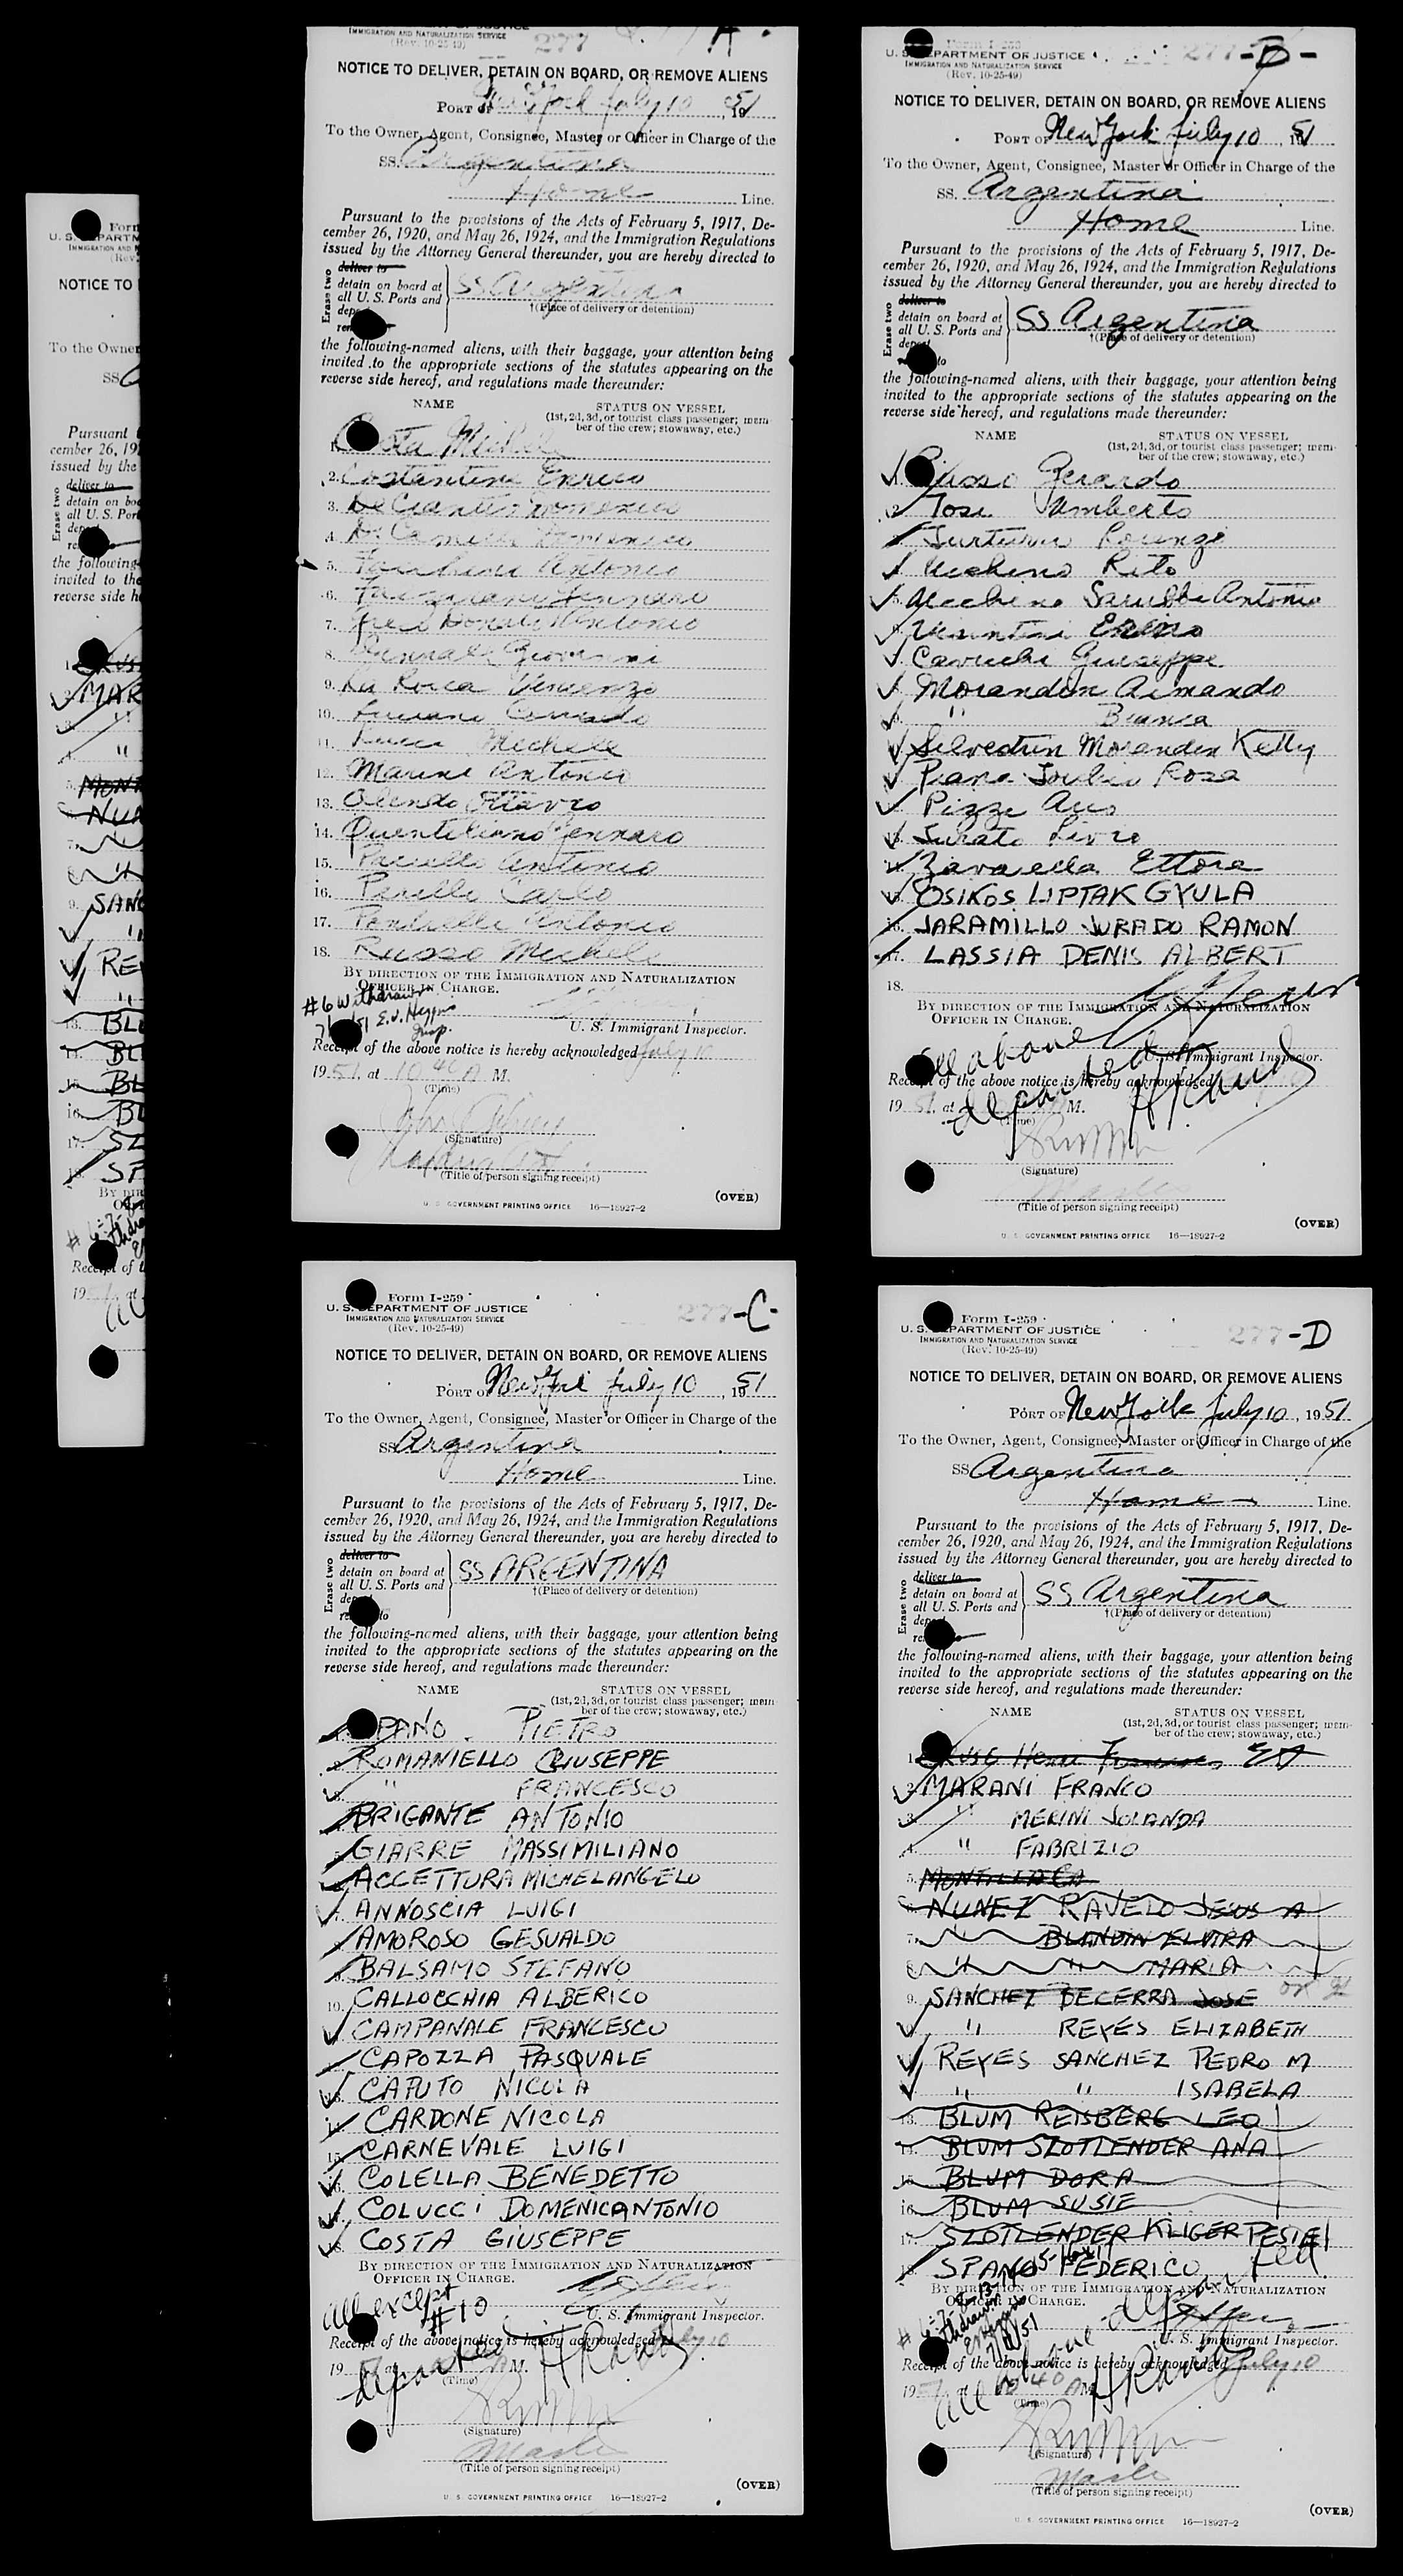 Form
U. S. DEPARTM
IMMIGRATION AND N
(Rev.
NOTICE TO
To the Owner
SS
Pursuant
cember 26, 19
issued by the
Erase two
deliver to
detain on boa
all U. S. Por
the following
invited to the
reverse side h
MAR
"
"
MONT
NUN
9. SANC
"
REY
"
BLU
BLU
BL
BL
SL
SP
BY DIR
Receipt of t
All
IMMIGRATION AND NATURALIZATION SERVICE
(Rev. 10-25-49)
277 A
NOTICE TO DELIVER, DETAIN ON BOARD, OR REMOVE ALIENS
PORT OF New York July 10, 1951
To the Owner, Agent, Consignee, Master or Officer in Charge of the
SS. Argentina
Home Line.
Pursuant to the provisions of the Acts of February 5, 1917, De-
cember 26, 1920, and May 26, 1924, and the Immigration Regulations
issued by the Attorney General thereunder, you are hereby directed to
Erase two
deliver to
detain on board at
all U. S. Ports and
SS Argentina
†(Place of delivery or detention)
the following-named aliens, with their baggage, your attention being
invited to the appropriate sections of the statutes appearing on the
reverse side hereof, and regulations made thereunder:
NAME STATUS ON VESSEL
(1st, 2d, 3d, or tourist class passenger; mem-
ber of the crew; stowaway, etc.)
1. Costa Michele
2. Costantini Enrico
3. Domenico
4. De Camillis Domenico
5. Antonio
6. Gennaro
7. Antonio
8. Giovanni
9. La Rocca Vincenzo
10. Luciano Corrado
11. Michele
12. Marini Antonio
13. Olindo Ottavio
14. Quentiliano Gennaro
15. Antonio
16. Perillo Carlo
17. Antonio
18. Russo Michele
BY DIRECTION OF THE IMMIGRATION AND NATURALIZATION
OFFICER IN CHARGE.
#6 Withdrawn
E.J. Higgins
Insp.
U. S. Immigrant Inspector.
Receipt of the above notice is hereby acknowledged July 10
1951, at 10 40 A M.
(Time)
(Signature)
(Title of person signing receipt)
(OVER)
U. S. GOVERNMENT PRINTING OFFICE 16—18927-2
Form I-259
U. S. DEPARTMENT OF JUSTICE
IMMIGRATION AND NATURALIZATION SERVICE
(Rev. 10-25-49)
277-B-
NOTICE TO DELIVER, DETAIN ON BOARD, OR REMOVE ALIENS
PORT OF New York July 10, 1951
To the Owner, Agent, Consignee, Master or Officer in Charge of the
SS. Argentina
Home Line.
Pursuant to the provisions of the Acts of February 5, 1917, De-
cember 26, 1920, and May 26, 1924, and the Immigration Regulations
issued by the Attorney General thereunder, you are hereby directed to
Erase two
deliver to
detain on board at
all U. S. Ports and
SS Argentina
†(Place of delivery or detention)
the following-named aliens, with their baggage, your attention being
invited to the appropriate sections of the statutes appearing on the
reverse side hereof, and regulations made thereunder:
NAME STATUS ON VESSEL
(1st, 2d, 3d, or tourist class passenger; mem-
ber of the crew; stowaway, etc.)
1. Russo Gerardo
2. Tosi Umberto
Lorenzo
Vecchino Rito
5. Vecchino Antonio
Visintini
7. Cavicchi Giuseppe
Morandin Armando
" Bianca
Silvestrin Morandin Ketty
Piana Rosa
Pizzi
Surato Livio
Zavarella Ettore
OSIKOS LIPTAK GYULA
16. JARAMILLO JURADO RAMON
17. LASSIA DENIS ALBERT
18.
BY DIRECTION OF THE IMMIGRATION AND NATURALIZATION
OFFICER IN CHARGE.
U. S. Immigrant Inspector.
All above departed
Receipt of the above notice is hereby acknowledged
1951, at M.
(Time)
(Signature)
Master
(Title of person signing receipt)
(OVER)
U. S. GOVERNMENT PRINTING OFFICE 16—18927-2
Form I-259
U. S. DEPARTMENT OF JUSTICE
IMMIGRATION AND NATURALIZATION SERVICE
(Rev. 10-25-49)
277-C-
NOTICE TO DELIVER, DETAIN ON BOARD, OR REMOVE ALIENS
PORT OF New York July 10, 1951
To the Owner, Agent, Consignee, Master or Officer in Charge of the
SS Argentina
Home Line.
Pursuant to the provisions of the Acts of February 5, 1917, De-
cember 26, 1920, and May 26, 1924, and the Immigration Regulations
issued by the Attorney General thereunder, you are hereby directed to
Erase two
deliver to
detain on board at
all U. S. Ports and
SS ARGENTINA
†(Place of delivery or detention)
the following-named aliens, with their baggage, your attention being
invited to the appropriate sections of the statutes appearing on the
reverse side hereof, and regulations made thereunder:
NAME STATUS ON VESSEL
(1st, 2d, 3d, or tourist class passenger; mem-
ber of the crew; stowaway, etc.)
SPANO PIETRO
ROMANIELLO GIUSEPPE
" FRANCESCO
BRIGANTE ANTONIO
GIARRE MASSIMILIANO
ACCETTURA MICHELANGELO
ANNOSCIA LUIGI
AMOROSO GESUALDO
BALSAMO STEFANO
10. CALLOCCHIA ALBERICO
CAMPANALE FRANCESCO
CAPOZZA PASQUALE
CAPUTO NICOLA
CARDONE NICOLA
15. CARNEVALE LUIGI
COLELLA BENEDETTO
COLUCCI DOMENICANTONIO
COSTA GIUSEPPE
BY DIRECTION OF THE IMMIGRATION AND NATURALIZATION
OFFICER IN CHARGE.
All except
#10
departed
U. S. Immigrant Inspector.
Receipt of the above notice is hereby acknowledged July 10
19 at M.
(Time)
(Signature)
Master
(Title of person signing receipt)
(OVER)
U. S. GOVERNMENT PRINTING OFFICE 16—18927-2
Form I-259
U. S. DEPARTMENT OF JUSTICE
IMMIGRATION AND NATURALIZATION SERVICE
(Rev. 10-25-49)
277-D
NOTICE TO DELIVER, DETAIN ON BOARD, OR REMOVE ALIENS
PORT OF New York July 10, 1951
To the Owner, Agent, Consignee, Master or Officer in Charge of the
SS Argentina
Home Line.
Pursuant to the provisions of the Acts of February 5, 1917, De-
cember 26, 1920, and May 26, 1924, and the Immigration Regulations
issued by the Attorney General thereunder, you are hereby directed to
Erase two
deliver to
detain on board at
all U. S. Ports and
SS Argentina
†(Place of delivery or detention)
the following-named aliens, with their baggage, your attention being
invited to the appropriate sections of the statutes appearing on the
reverse side hereof, and regulations made thereunder:
NAME STATUS ON VESSEL
(1st, 2d, 3d, or tourist class passenger; mem-
ber of the crew; stowaway, etc.)
1. Henri
2. MARANI FRANCO
3. " MERINI JOLANDA
4. " FABRIZIO
5. MONTILLA
6. NUNEZ RAVELO JESUS A
7. " BLANDIN ELVIRA
8. " " MARIA
9. SANCHEZ BECERRA JOSE
" REYES ELIZABETH
REYES SANCHEZ PEDRO M
" " ISABELA
13. BLUM REISBERG LEO
14. BLUM SZOTLENDER ANA
15. BLUM DORA
16. BLUM SUSIE
17. SZOTLENDER KLIGER PESIEL
18. SPANO FEDERICO
BY DIRECTION OF THE IMMIGRATION AND NATURALIZATION
OFFICER IN CHARGE.
U. S. Immigrant Inspector.
All above departed
Receipt of the above notice is hereby acknowledged July 10
1951, at 10 40 A M.
(Time)
(Signature)
Master
(Title of person signing receipt)
(OVER)
U. S. GOVERNMENT PRINTING OFFICE 16—18927-2